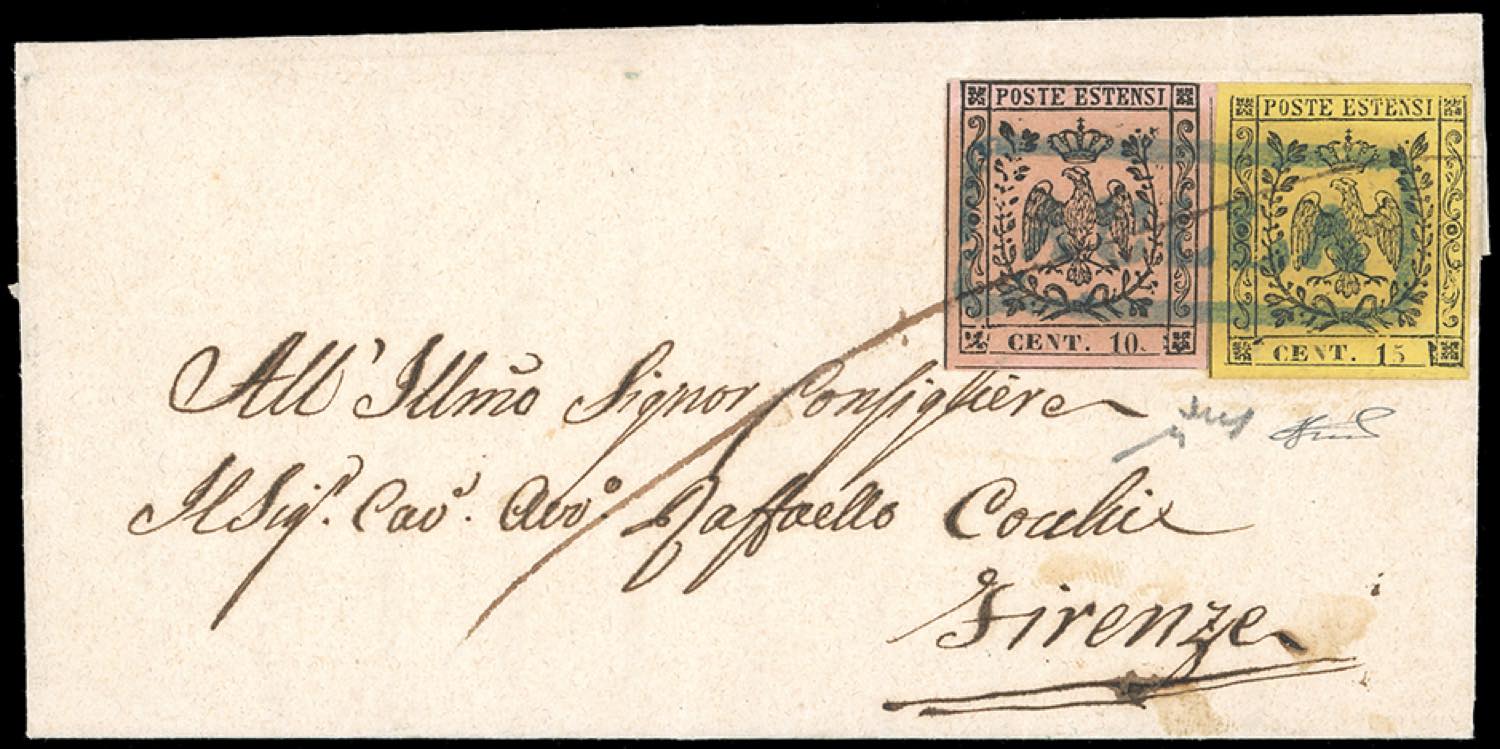 POSTE ESTENSI
CENT. 10.
POSTE ESTENSI
CENT. 15
All' Illmo Signor Consigliere
Il Sig.r Cav.r Avv.o Raffaello Cocchi
Firenze